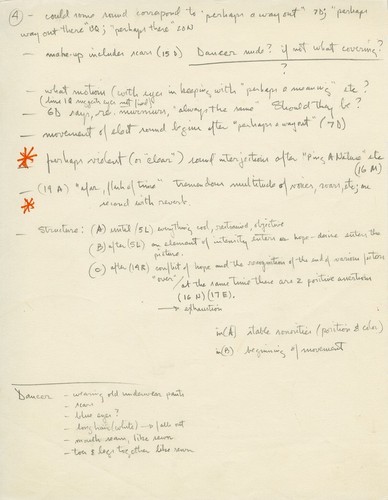 ④ - could some sound correspond to "perhaps a way out" 7D; "perhaps
way out there" 8Q; "perhaps there" 20N
- make-up includes scars (15D) Dancer nude? if not what covering?
?
- what motions (with eyes in keeping with "perhaps a meaning" etc?
(line 18 suggests eyes not fixed)
- 6D says, re. murmurs, "always the same" Should they be?
- movement of elect sound begins after "perhaps a way out" (7D)
* perhaps violent (or "clear") sound interjections after "Ping A Nature" etc
(16M)
- (19A) "afar, flash of time" tremendous multitude of voices, roars, etc; one
second with reverb.
*
- Structure: (A) until (5L) everything cool, restrained, objective
(B) after (5L) an element of intensity enters as hope-desire enters the
picture.
(C) after (14R) conflict of hope and the recognition of the end of various factors
"over" / at the same time there are 2 positive assertions
(16N) (17E).
→ exhaustion
in (A) stable sonorities (position & color)
in (B) beginning of movement
Dancer - wearing old underwear pants
- scars
- blue eyes?
- long hair (white) → falls out
- mouth seam, like sewn
- toes & legs together like sewn